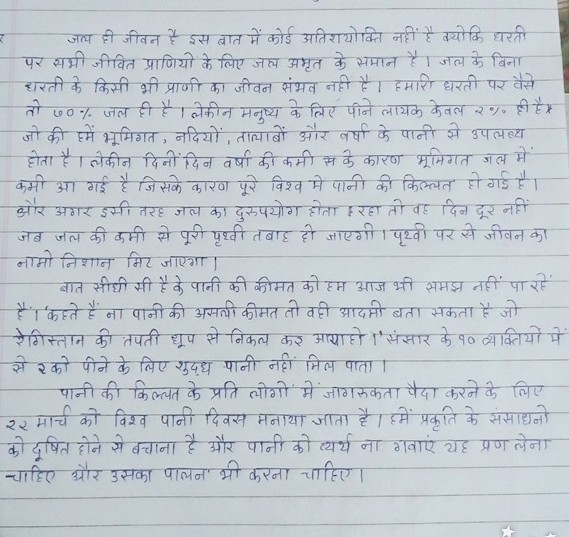 जल ही जीवन है इस बात में कोई अतिशयोक्ति नहीं है क्योकि धरती
पर सभी जीवित प्राणियों के लिए जल अमृत के समान है। जल के बिना
धरती के किसी भी प्राणी का जीवन संभव नही है। हमारी धरती पर वैसे
तो ७०% जल ही है। लेकीन मनुष्य के लिए पीने लायक केवल २% ही है
जो की हमें भूमिगत, नदियों, तालाबों और वर्षा के पानी से उपलब्ध
होता है। लेकीन दिनों दिन वर्षा की कमी के कारण भूमिगत जल में
कमी आ गई है जिसके कारण पूरे विश्व में पानी की किल्लत हो गई है।
और अगर इसी तरह जल का दुरुपयोग होता रहा तो वह दिन दूर नहीं
जब जल की कमी से पूरी पृथ्वी तबाह हो जाएगी। पृथ्वी पर से जीवन का
नामो निशान मिट जाएगा।
बात सीधी सी है के पानी की कीमत को हम आज भी समझ नहीं पा रहें
हैं। 'कहते हैं ना पानी की असली कीमत तो वही आदमी बता सकता है जो
रेगिस्तान की तपती धूप से निकल कर आया हो।' संसार के १० व्यक्तियों में
से २ को पीने के लिए शुद्ध पानी नहीं मिल पाता।
पानी की किल्लत के प्रति लोगों में जागरुकता पैदा करने के लिए
२२ मार्च को विश्व पानी दिवस मनाया जाता है। हमें प्रकृति के संसाधनो
को दूषित होने से बचाना है और पानी को व्यर्थ ना गवाएं यह प्रण लेना
चाहिए और उसका पालन भी करना चाहिए।